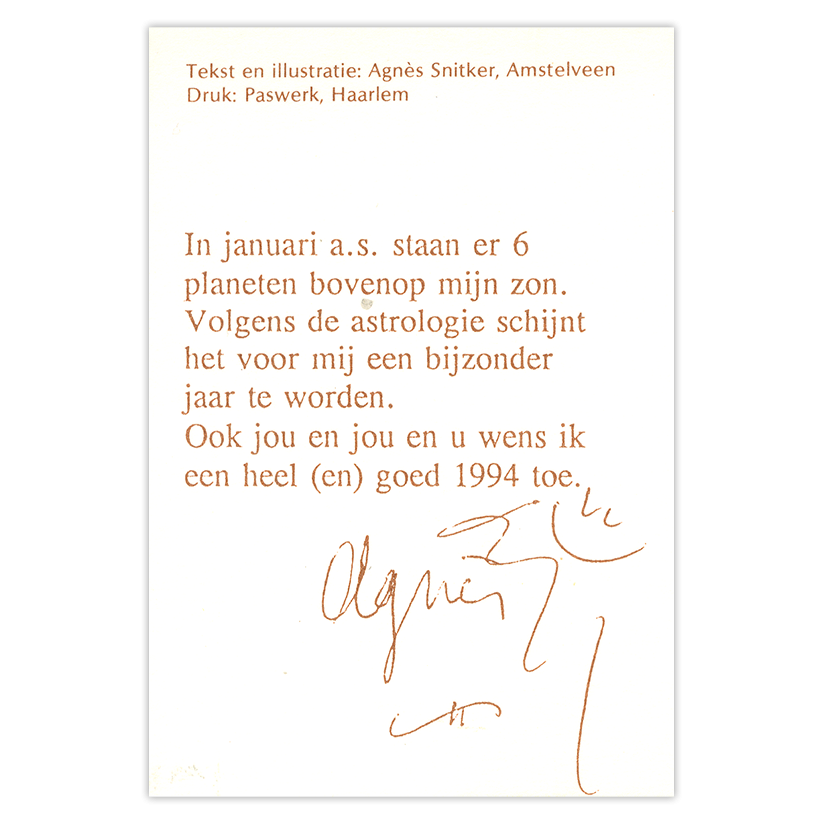 Tekst en illustratie: Agnès Snitker, Amstelveen
Druk: Paswerk, Haarlem
In januari a.s. staan er 6
planeten bovenop mijn zon.
Volgens de astrologie schijnt
het voor mij een bijzonder
jaar te worden.
Ook jou en jou en u wens ik
een heel (en) goed 1994 toe.
Agnès